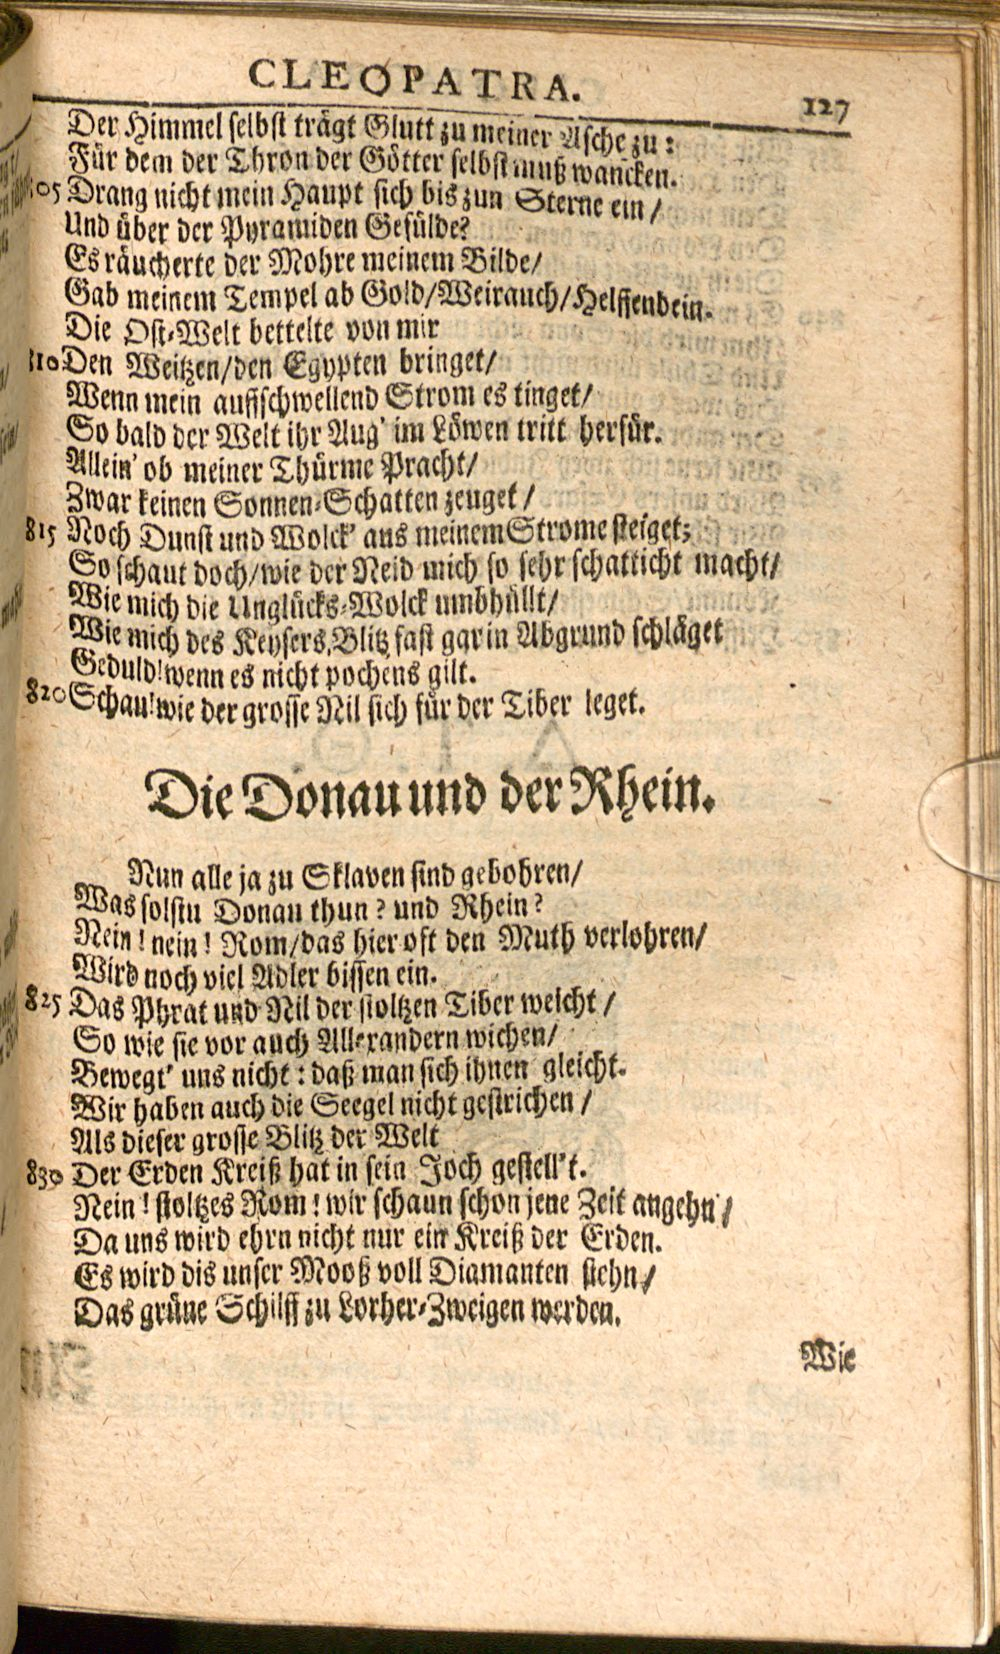 CLEOPATRA.
127
Der Himmel selbst trägt Glutt zu meiner Asche zu:
Für dem der Thron der Götter selbst muß wancken.
05 Drang nicht mein Haupt sich bis zun Sterne ein/
Und über der Pyramiden Gefülde?
Es räucherte der Mohre meinem Bilde/
Gab meinem Tempel ab Gold/Weirauch/Helffenbein.
Die Ost-Welt bettelte von mir
810 Den Weitzen/den Egypten bringet/
Wenn mein auffschwellend Strom es tinget/
So bald der Welt ihr Aug' im Löwen tritt herfür.
Allein' ob meiner Thürme Pracht/
Zwar keinen Sonnen-Schatten zeuget/
815 Noch Dunst und Wolck' aus meinem Strome steiget;
So schaut doch/wie der Neid mich so sehr schatticht macht/
Wie mich die Unglücks-Wolck umbhüllt/
Wie mich des Keysers Blitz fast gar in Abgrund schläget
Geduld! wenn es nicht pochens gilt.
820 Schau! wie der grosse Nil sich für der Tiber leget.
Die Donau und der Rhein.
Nun alle ja zu Sklaven sind gebohren/
Was solstu Donau thun? und Rhein?
Nein! nein! Rom/das hier oft den Muth verlohren/
Wird noch viel Adler büssen ein.
825 Das Phrat und Nil der stoltzen Tiber weicht/
So wie sie vor auch Allexandern wichen/
Bewegt' uns nicht: daß man sich ihnen gleicht.
Wir haben auch die Seegel nicht gestrichen/
Als dieser grosse Blitz der Welt
830 Der Erden Kreiß hat in sein Joch gestell't.
Nein! stoltzes Rom! wir schaun schon jene Zeit angehn/
Da uns wird ehrn nicht nur ein Kreiß der Erden.
Es wird dis unser Mooß voll Diamanten stehn/
Das grüne Schilff zu Lorher-Zweigen werden.
Wie